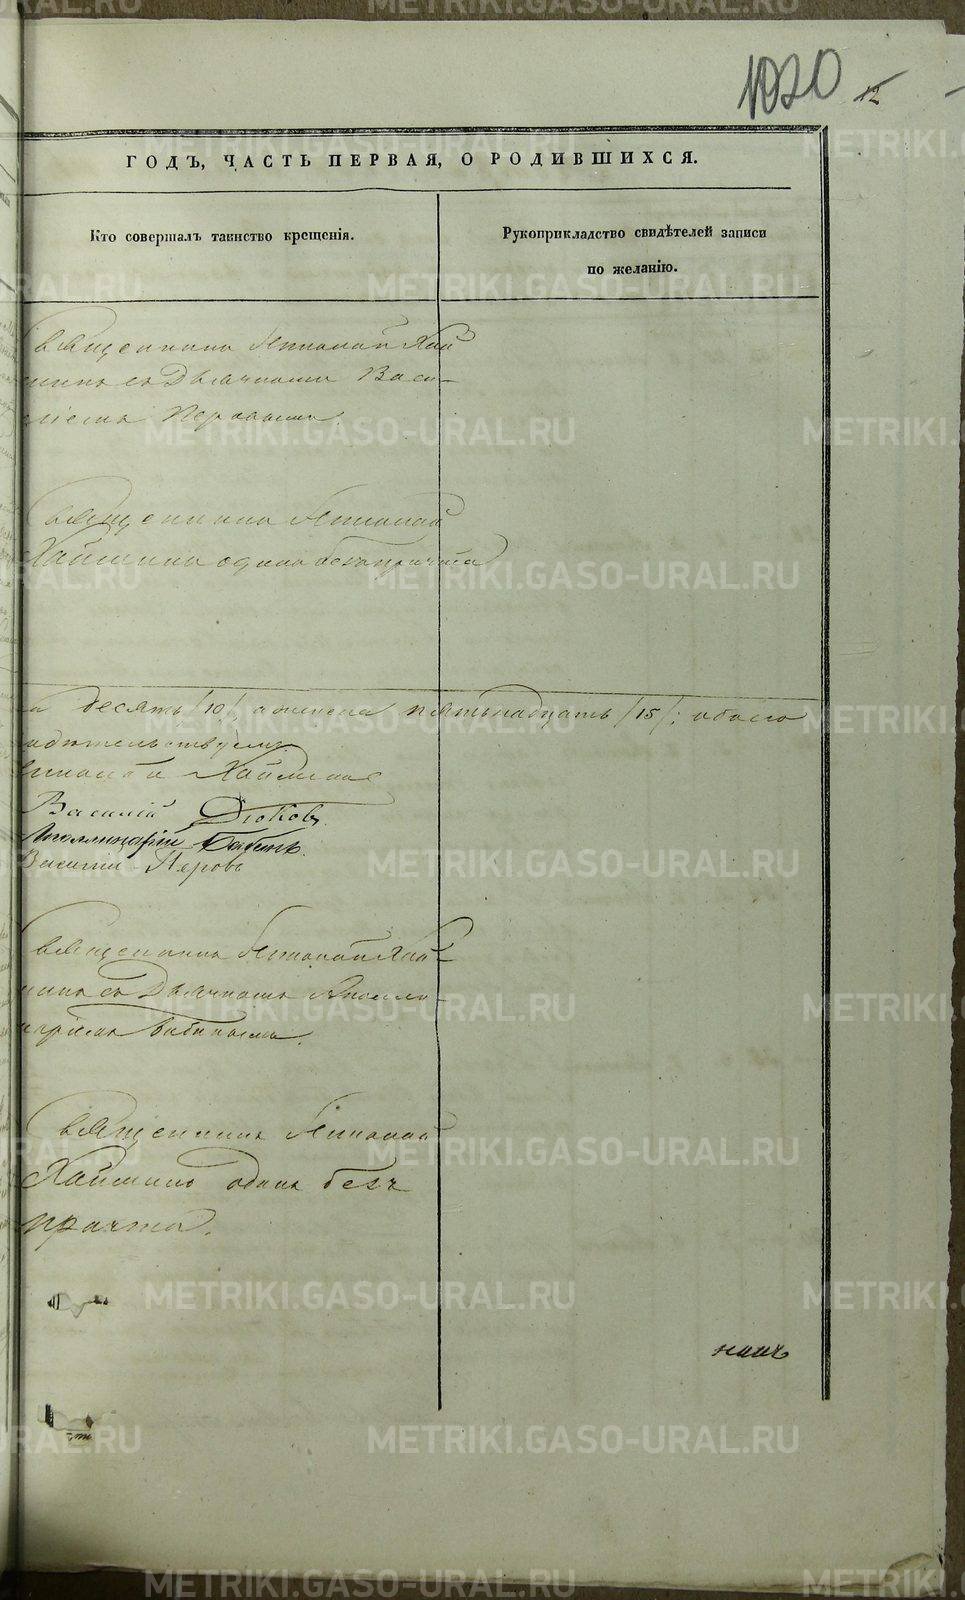 1020 12
ГОДЪ, ЧАСТЬ ПЕРВАЯ, О РОДИВШИХСЯ.
Кто совершалъ таинство крещенія.
Рукоприкладство свидѣтелей записи
по желанію.
Священникъ Николай Хай
минъ съ Дьячкомъ Васи-
ліемъ Перовымъ.
Священникъ Николай
Хайминъ одинъ безъ причта
десять /10/, а женска пятьнадцать /15/; обоего
Хайминъ
Василій Дюковъ.
Аполлинарій Бабинъ.
Василій Перовъ
Священникъ Николай Хай-
минъ съ Дьячкомъ Аполли-
наріемъ Бабинымъ.
Священникъ Николай
Хайминъ одинъ безъ
причта.
METRIKI.GASO-URAL.RU